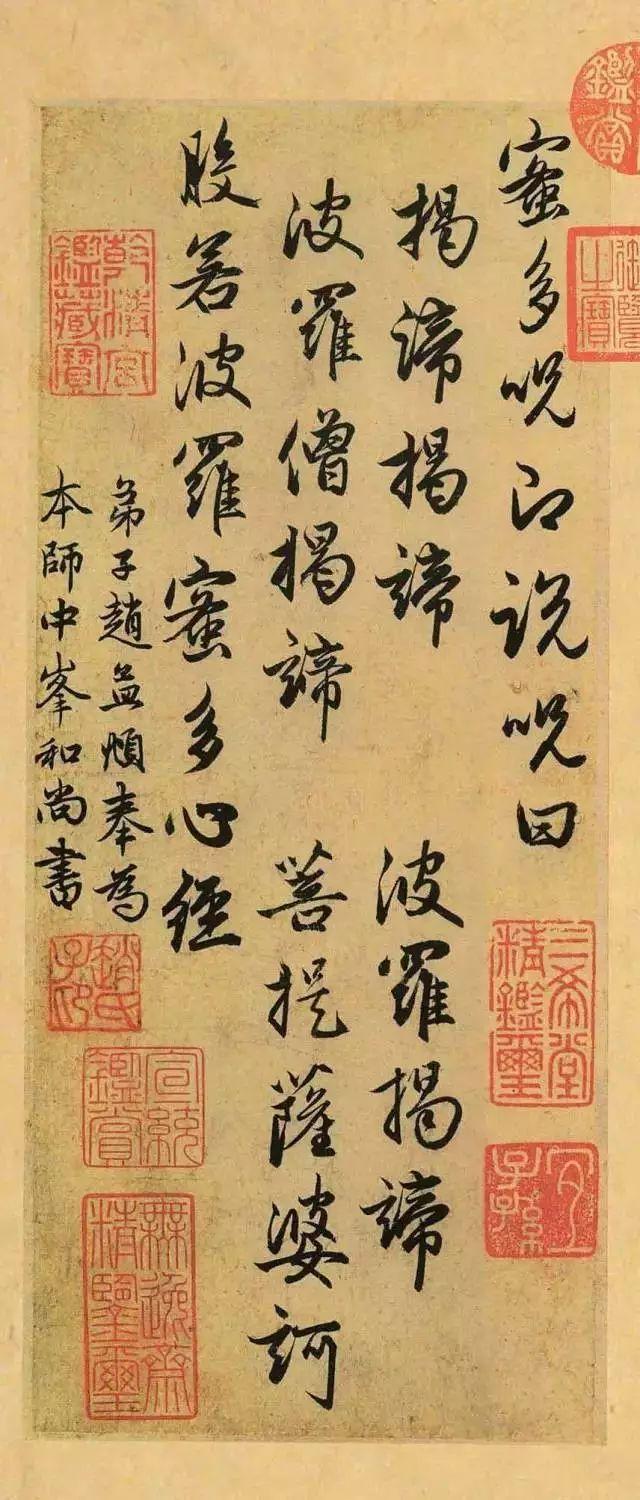 鑑賞
御覽之寶
蜜多呪即說呪曰
三希堂精鑑璽
宜子孫
揭諦揭諦 波羅揭諦
波羅僧揭諦 菩提薩婆訶
般若波羅蜜多心經
弟子趙孟頫奉為
本師中峯和尚書
乾清宮鑑藏寶
趙氏子印
宣統鑑賞
無逸齋精鑒璽